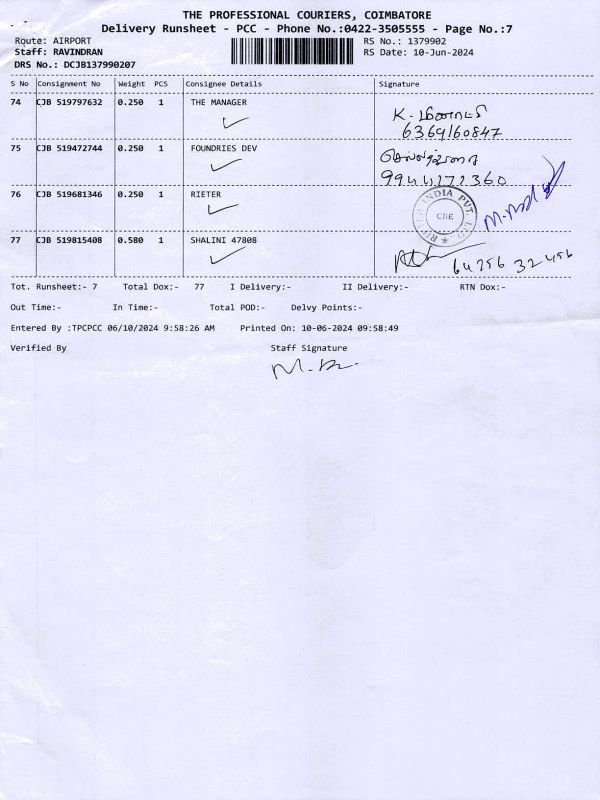 THE PROFESSIONAL COURIERS, COIMBATORE
Delivery Runsheet - PCC - Phone No.:0422-3505555 - Page No.:7
Route: AIRPORT RS No.: 1379902
Staff: RAVINDRAN RS Date: 10-Jun-2024
DRS No.: DCJB137990207
S No Consignment No Weight PCS Consignee Details Signature
74 CJB 519797632 0.250 1 THE MANAGER
K.
6369160847
75 CJB 519472744 0.250 1 FOUNDRIES DEV
9944272360
76 CJB 519681346 0.250 1 RIETER
INDIA PVT. LTD.
77 CJB 519815408 0.580 1 SHALINI 47808
64256 32456
Tot. Runsheet:- 7 Total Dox:- 77 I Delivery:- II Delivery:- RTN Dox:-
Out Time:- In Time:- Total POD:- Delvy Points:-
Entered By :TPCPCC 06/10/2024 9:58:26 AM Printed On: 10-06-2024 09:58:49
Verified By Staff Signature